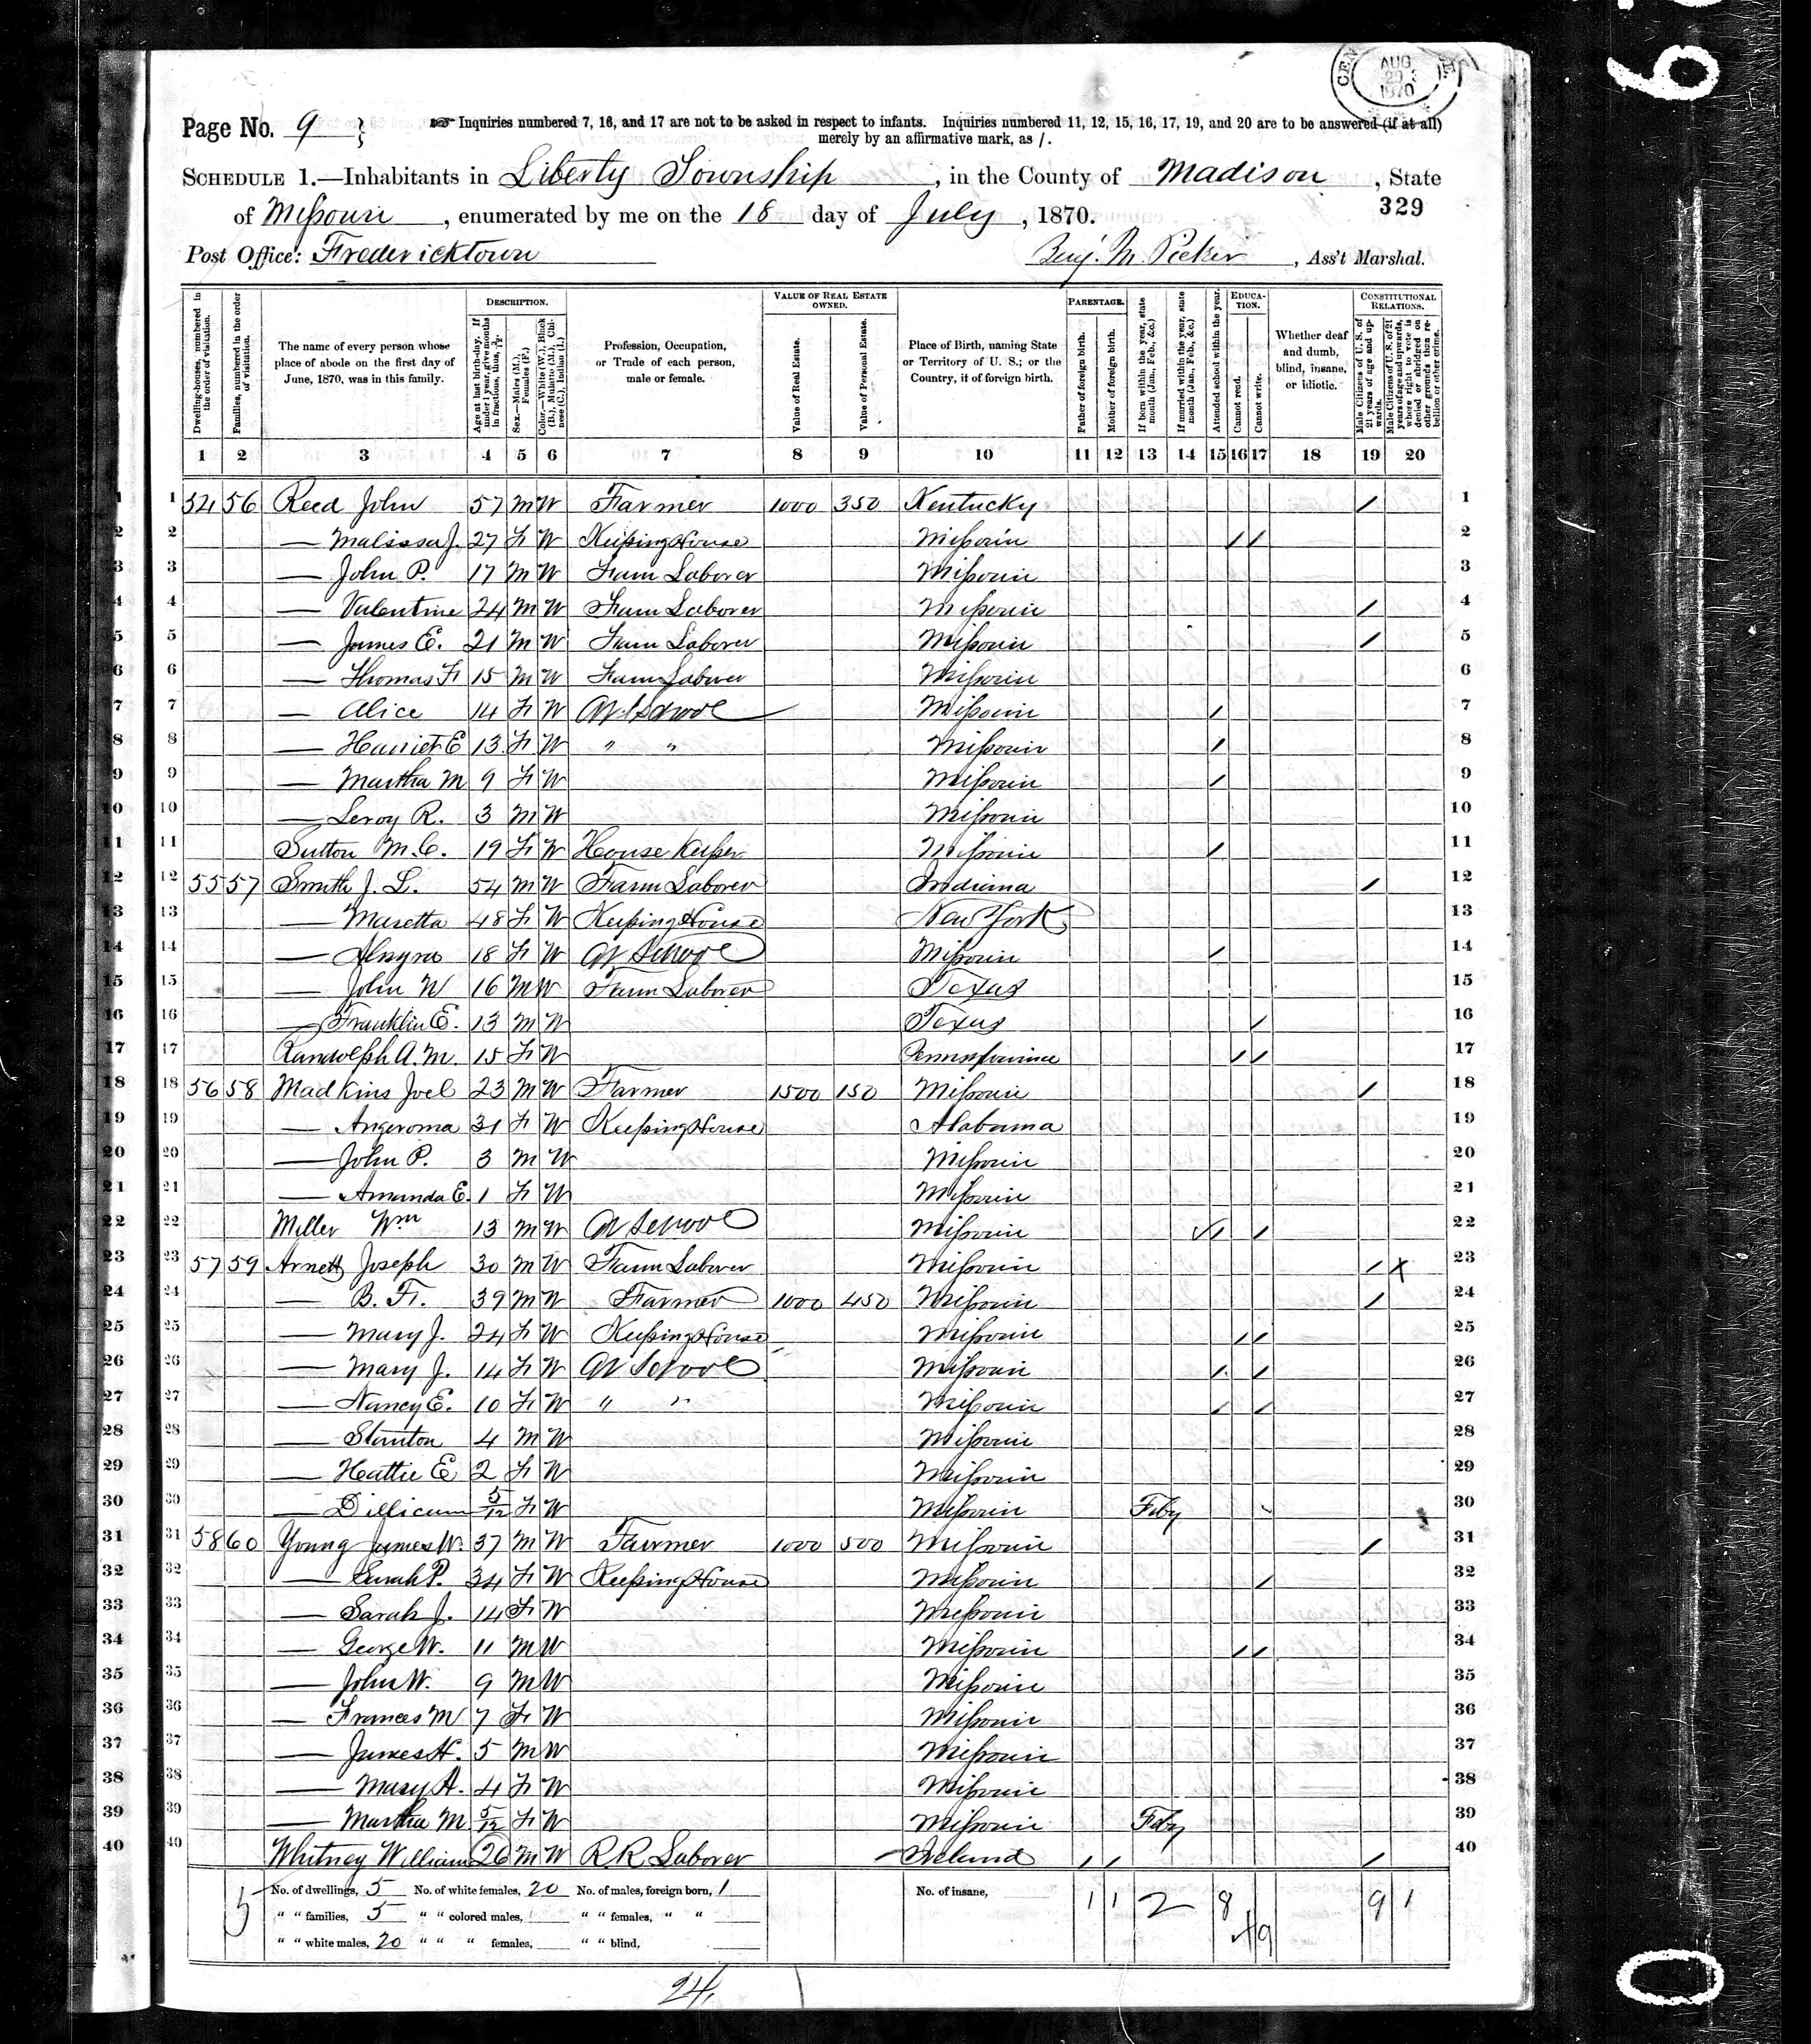 CEN AUG 20 1870
Page No. 9
Inquiries numbered 7, 16, and 17 are not to be asked in respect to infants. Inquiries numbered 11, 12, 15, 16, 17, 19, and 20 are to be answered (if at all)
merely by an affirmative mark, as /.
SCHEDULE 1.—Inhabitants in Liberty Township, in the County of Madison, State
of Missouri, enumerated by me on the 18 day of July, 1870.
329
Post Office: Fredericktown Benj. M. , Ass't Marshal.
Dwelling-houses, numbered in the order of visitation.
Families, numbered in the order of visitation.
The name of every person whose place of abode on the first day of June, 1870, was in this family.
DESCRIPTION.
Age at last birth-day. If under 1 year, give months in fractions, thus, 3/12.
Sex.—Males (M.), Females (F.)
Color.—White (W.), Black (B.), Mulatto (M.), Chinese (C.), Indian (I.)
Profession, Occupation, or Trade of each person, male or female.
VALUE OF REAL ESTATE OWNED.
Value of Real Estate.
Value of Personal Estate.
Place of Birth, naming State or Territory of U. S.; or the Country, if of foreign birth.
PARENTAGE.
Father of foreign birth.
Mother of foreign birth.
If born within the year, state month (Jan., Feb., &c.)
If married within the year, state month (Jan., Feb., &c.)
Attended school within the year.
EDUCATION.
Cannot read.
Cannot write.
Whether deaf and dumb, blind, insane, or idiotic.
CONSTITUTIONAL RELATIONS.
Male Citizens of U. S. of 21 years of age and upwards.
Male Citizens of U. S. of 21 years of age and upwards, whose right to vote is denied or abridged on other grounds than rebellion or other crime.
1 2 3 4 5 6 7 8 9 10 11 12 13 14 15 16 17 18 19 20
1 1 54 56 Reed John 57 M W Farmer 1000 350 Kentucky / 1
2 2 — Malissa J. 27 F W Keeping House Missouri / / 2
3 3 — John P. 17 M W Farm Laborer Missouri 3
4 4 — Valentine 24 M W Farm Laborer Missouri / 4
5 5 — James E. 21 M W Farm Laborer Missouri / 5
6 6 — Thomas F 15 M W Farm Laborer Missouri 6
7 7 — Alice 14 F W At School Missouri / 7
8 8 — Harriet E 13 F W " " Missouri / 8
9 9 — Martha M 9 F W Missouri / 9
10 10 — Leroy R. 3 M W Missouri 10
11 11 Sutton M. C. 19 F W House Keeper Missouri / 11
12 12 55 57 Smith J. L. 54 M W Farm Laborer Indiana / 12
13 13 — Maretta 48 F W Keeping House New York 13
14 14 — 18 F W At School Missouri / 14
15 15 — John W 16 M W Farm Laborer Texas 15
16 16 — Franklin E. 13 M W Texas / 16
17 17 Randolph A. M. 15 F W Pennsylvania / / 17
18 18 56 58 Madkins Joel 23 M W Farmer 1500 150 Missouri / 18
19 19 — Angeroma 31 F W Keeping House Alabama 19
20 20 — John P. 3 M W Missouri 20
21 21 — Amanda E. 1 F W Missouri 21
22 22 Miller Wm 13 M W At School Missouri / / 22
23 23 57 59 Arnett Joseph 30 M W Farm Laborer Missouri / X 23
24 24 — B. F. 39 M W Farmer 1000 450 Missouri / 24
25 25 — Mary J. 24 F W Keeping House Missouri / / 25
26 26 — Mary J. 14 F W At School Missouri / / 26
27 27 — Nancy E. 10 F W " " Missouri / / 27
28 28 — Stanton 4 M W Missouri 28
29 29 — Hattie E 2 F W Missouri 29
30 30 — 5/12 F W Missouri Feby 30
31 31 58 60 Young James W. 37 M W Farmer 1000 500 Missouri / 31
32 32 — Sarah P. 34 F W Keeping House Missouri / 32
33 33 — Sarah J. 14 F W Missouri 33
34 34 — George W. 11 M W Missouri / / 34
35 35 — John W. 9 M W Missouri 35
36 36 — Frances M 7 F W Missouri 36
37 37 — James H. 5 M W Missouri 37
38 38 — Mary A. 4 F W Missouri 38
39 39 — Martha M 5/12 F W Missouri Feby 39
40 40 Whitney William 26 M W R. R. Laborer Ireland / / / 40
No. of dwellings, 5 No. of white females, 20 No. of males, foreign born, 1 No. of insane, 1 1 2 8 9 1
" " families, 5 " " colored males, " " females, " "
" " white males, 20 " " " females, " " blind,
24